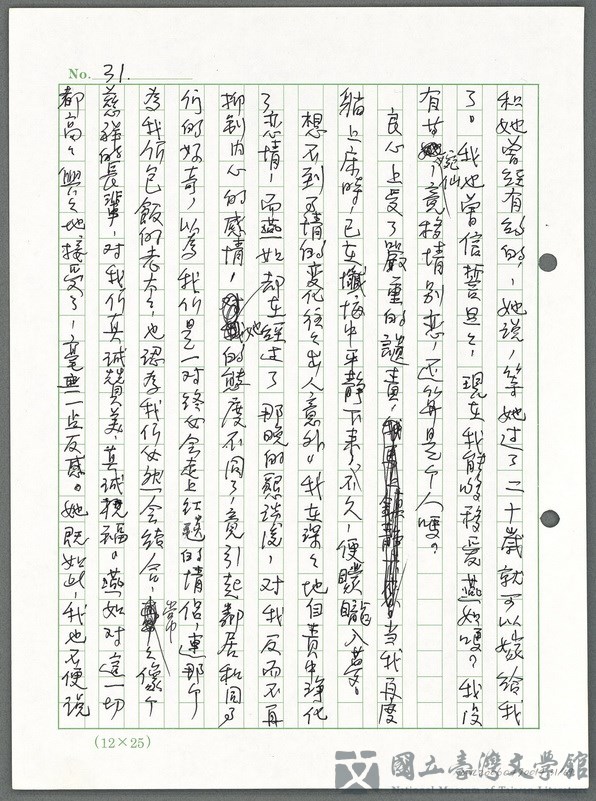 No. 31.
和她曾經有約的,她說,等她過了二十歲就可以嫁給我
了。我也曾信誓旦旦,現在我能夠移愛燕如嗎?我沒
有甘宛仙,竟移情別戀,还算是个人嗎?
良心上受了嚴重的譴責,當我再度
躺上床時,已在懺悔中平靜下來了,不久,便朦朧入夢。
想不到事情的變化往往出人意外。我在深深地自責中淨化
了恋情,而燕如却在經過了那晚的懇談後,对我反而不再
抑制內心的感情,她的態度不同了,竟引起鄰居和同
行的好奇,以為我们是一对終必會走上红毯的情侣,連那个
為我们包飯的老太太,也認為我们必然會結合,常常像个
慈祥的長輩,对我们真誠贊美,真誠祝福。燕如对這一切
都高高興興地接受了,毫無一点反感。她既如此,我也不便說
(12×25)
國立臺灣文學館
National Museum of Taiwan Literature